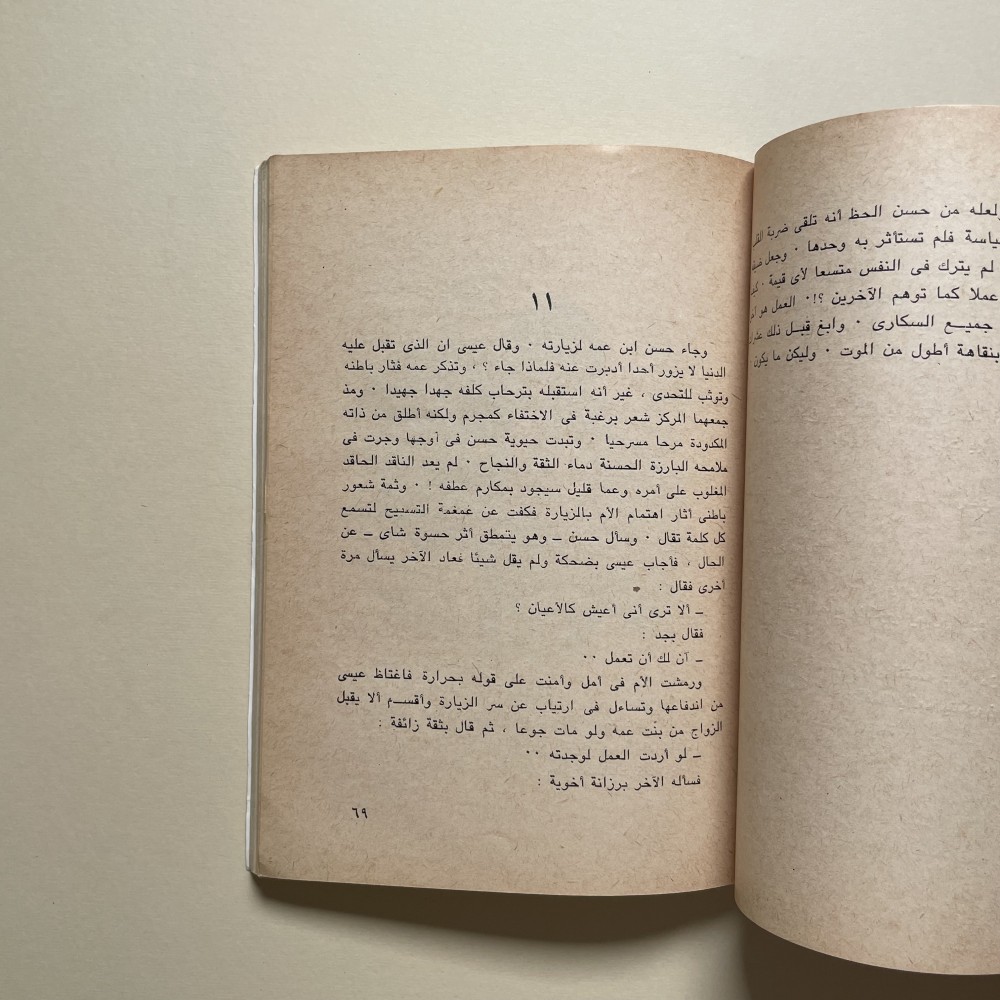 ولعله من حسن الحظ أنه تلقى ضربة
فلم تستأثر به وحدها ٠ وجعل
لم يترك فى النفس متسعا لأى قيمة ٠
عملا كما توهم الآخرين ؟!٠ العمل هو
جميـــع السكارى ٠ وابغ قبــل ذلك
بنقاهة أطول من الموت ٠ وليكن ما يكون
١١
وجاء حسن ابن عمه لزيارته ٠ وقال عيسى ان الذى تقبل عليه
الدنيا لا يزور أحدا أدبرت عنه فلماذا جاء ؟ ، وتذكر عمه فثار باطنه
وتوثب للتحدى ، غير أنه استقبله بترحاب كلفه جهدا جهيدا ٠ ومذ
جمعهما المركز شعر برغبة فى الاختفاء كمجرم ولكنه أطلق من ذاته
المكدودة مرحا مسرحيا ٠ وتبدت حيوية حسن فى أوجها وجرت فى
ملامحه البارزة الحسنة دماء الثقة والنجاح ٠ لم يعد الناقد الحاقد
المغلوب على أمره وعما قليل سيجود بمكارم عطفه ! ٠ وثمة شعور
باطنى أثار اهتمام الأم بالزيارة فكفت عن غمغمة التسبيح لتسمع
كل كلمة تقال ٠ وسأل حسن ــ وهو يتمطق أثر حسوة شاى ــ عن
الحال ، فأجاب عيسى بضحكة ولم يقل شيئا فعاد الآخر يسأل مرة
أخرى فقال :
ــ ألا ترى أنى أعيش كالأعيان ؟
فقال بجد :
ــ آن لك أن تعمل ٠٠
ورمشت الأم فى أمل وأمنت على قوله بحرارة فاغتاظ عيسى
من اندفاعها وتساءل فى ارتياب عن سر الزيارة وأقســم ألا يقبل
الزواج من بنت عمه ولو مات جوعا ، ثم قال بثقة زائفة :
ــ لو أردت العمل لوجدته ٠٠
فسأله الآخر برزانة أخوية :
٦٩